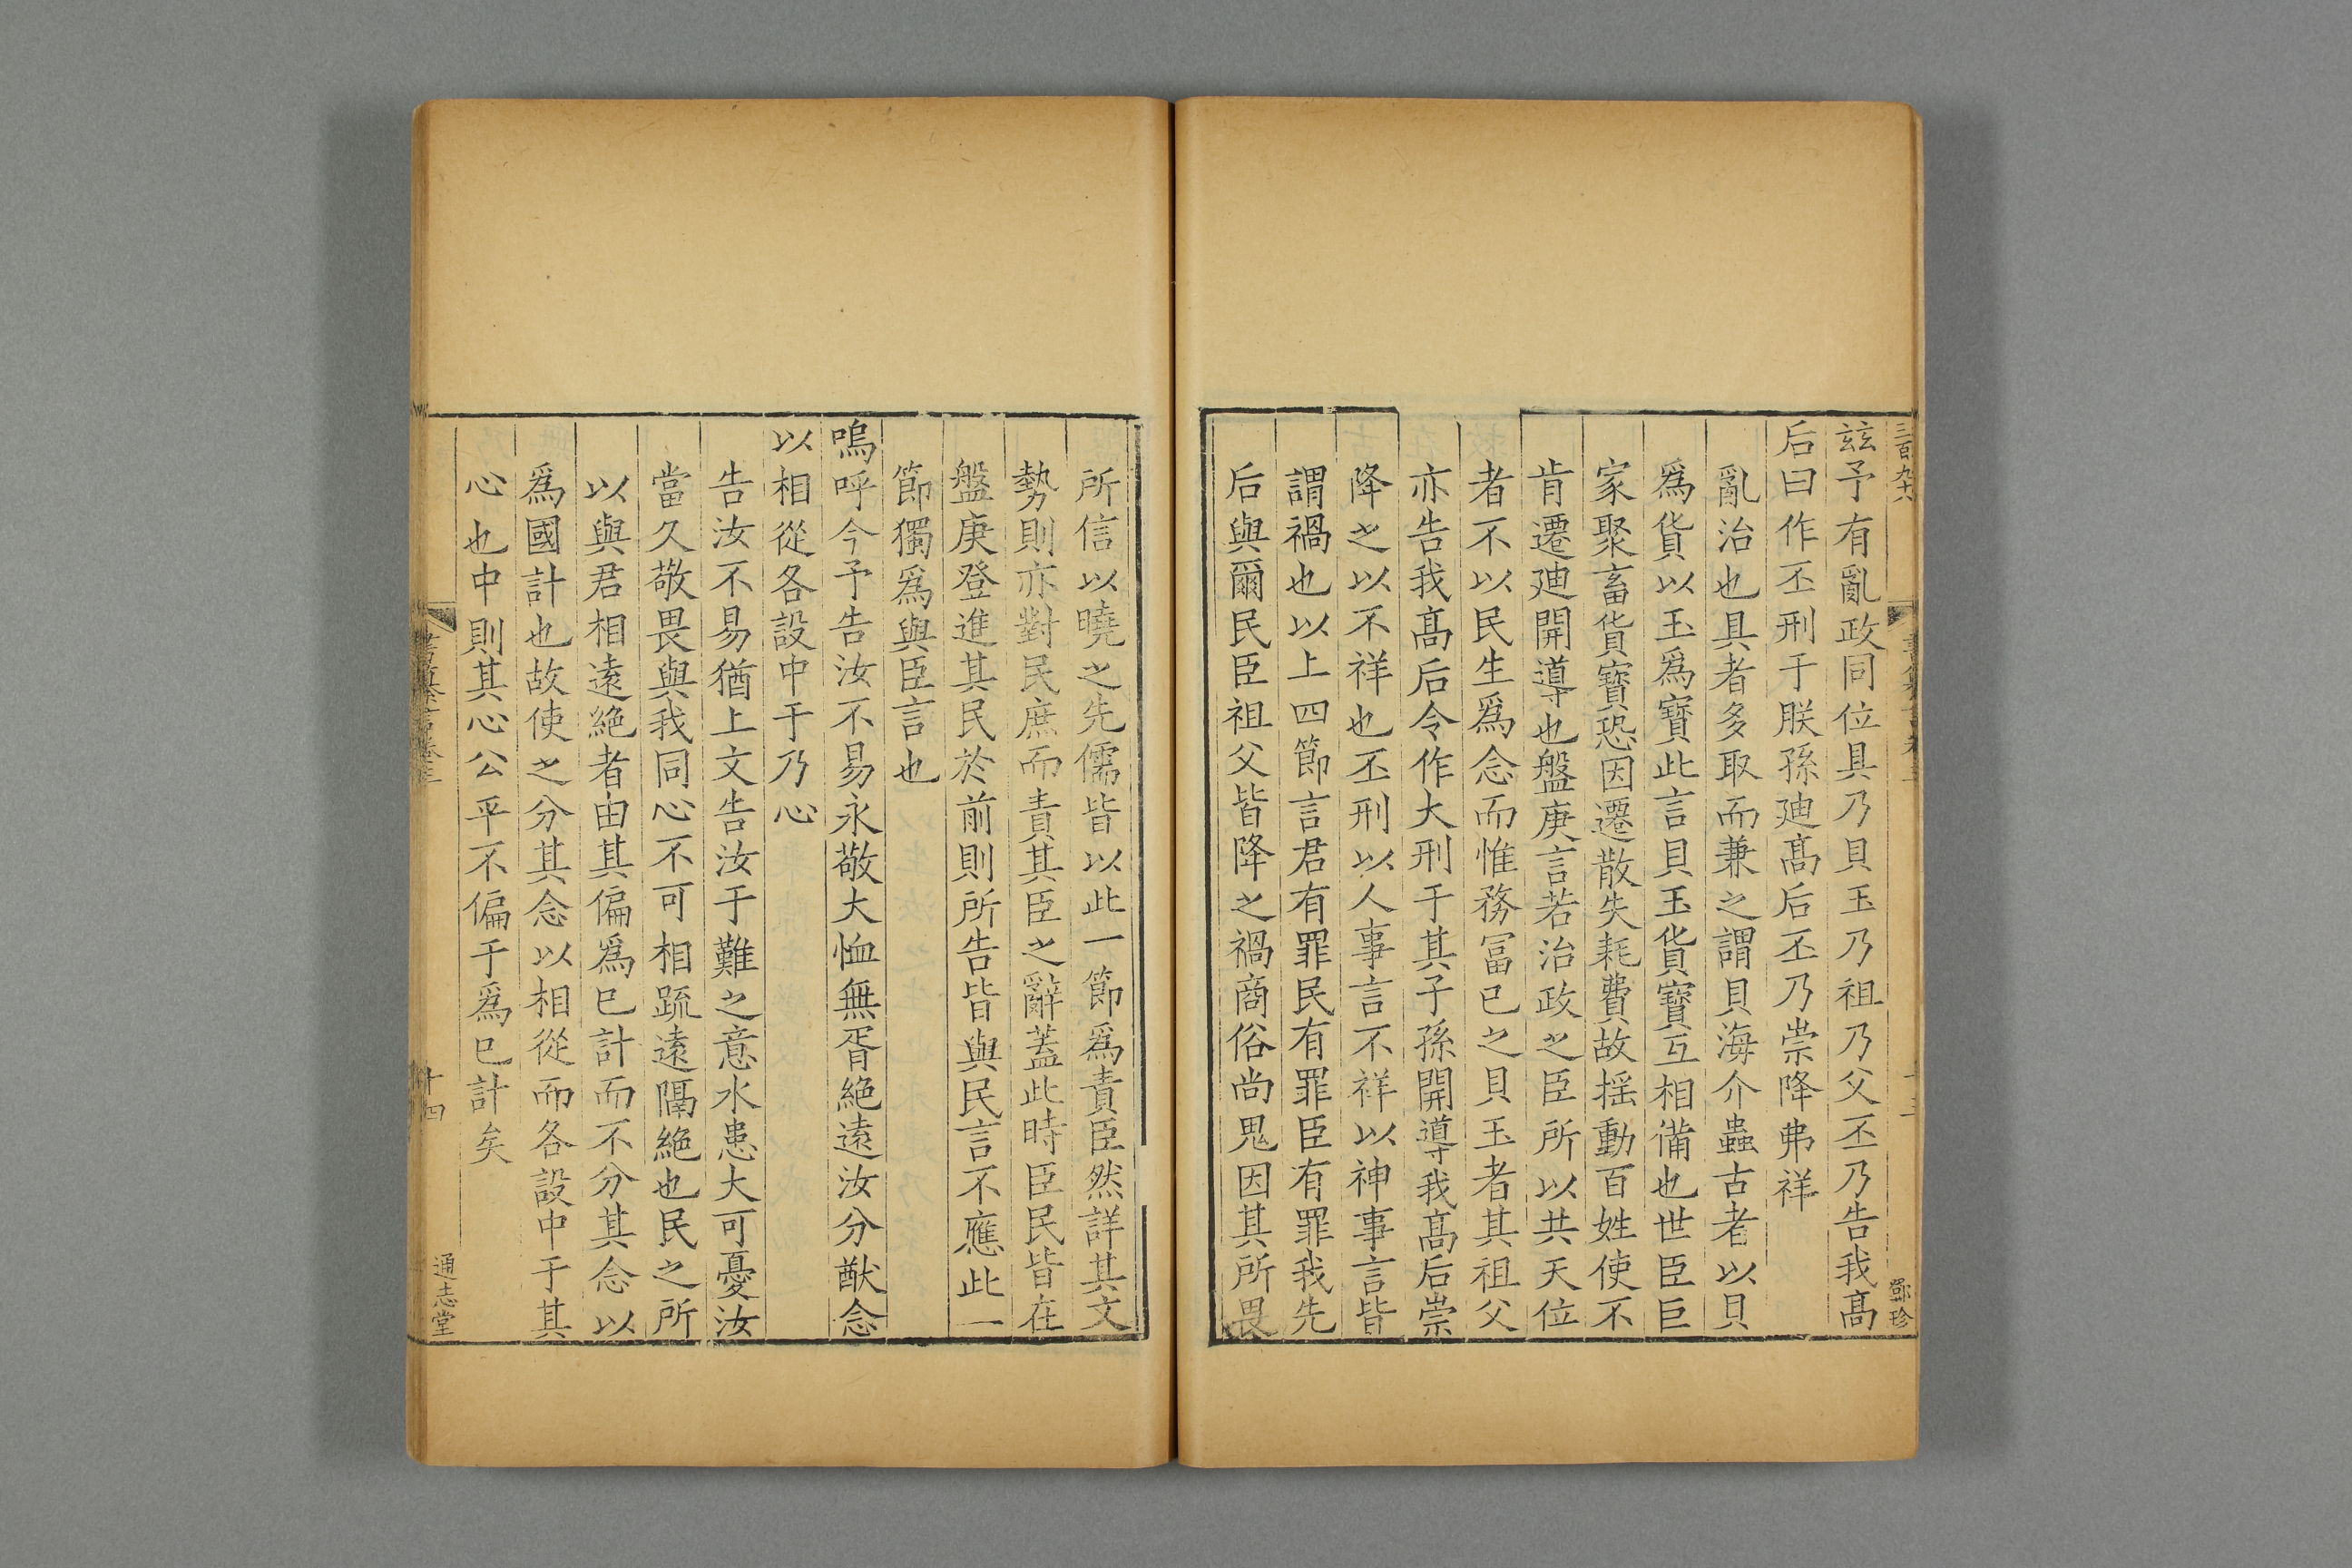 三百九十六
玆予有亂政同位具乃貝玉乃祖乃父丕乃告我髙
后曰作丕刑于朕孫廸髙后丕乃崇降弗祥
亂治也具者多取而兼之謂貝海介蟲古者以貝
爲貨以玉爲寶此言貝玉貨寶互相備也世臣巨
家聚畜貨寶恐因遷散失耗費故揺動百姓使不
肯遷廸開導也盤庚言若治政之臣所以共天位
者不以民生爲念而惟務冨已之貝玉者其祖父
亦告我髙后令作大刑于其子孫開導我髙后崇
降之以不祥也丕刑以人事言不祥以神事言皆
謂禍也以上四節言君有罪民有罪臣有罪我先
后與爾民臣祖父皆降之禍商俗尚鬼因其所畏
鄧珍
所信以曉之先儒皆以此一節爲責臣然詳其文
勢則亦對民庶而責其臣之辭蓋此時臣民皆在
盤庚登進其民於前則所告皆與民言不應此一
節獨爲與臣言也
嗚呼今予告汝不易永敬大恤無胥絶遠汝分猷念
以相從各設中于乃心
告汝不易猶上文告汝于難之意水患大可憂汝
當久敬畏與我同心不可相疏遠隔絶也民之所
以與君相遠絶者由其偏爲已計而不分其念以
爲國計也故使之分其念以相從而各設中于其
心也中則其心公平不偏于爲已計矣
十四
通志堂